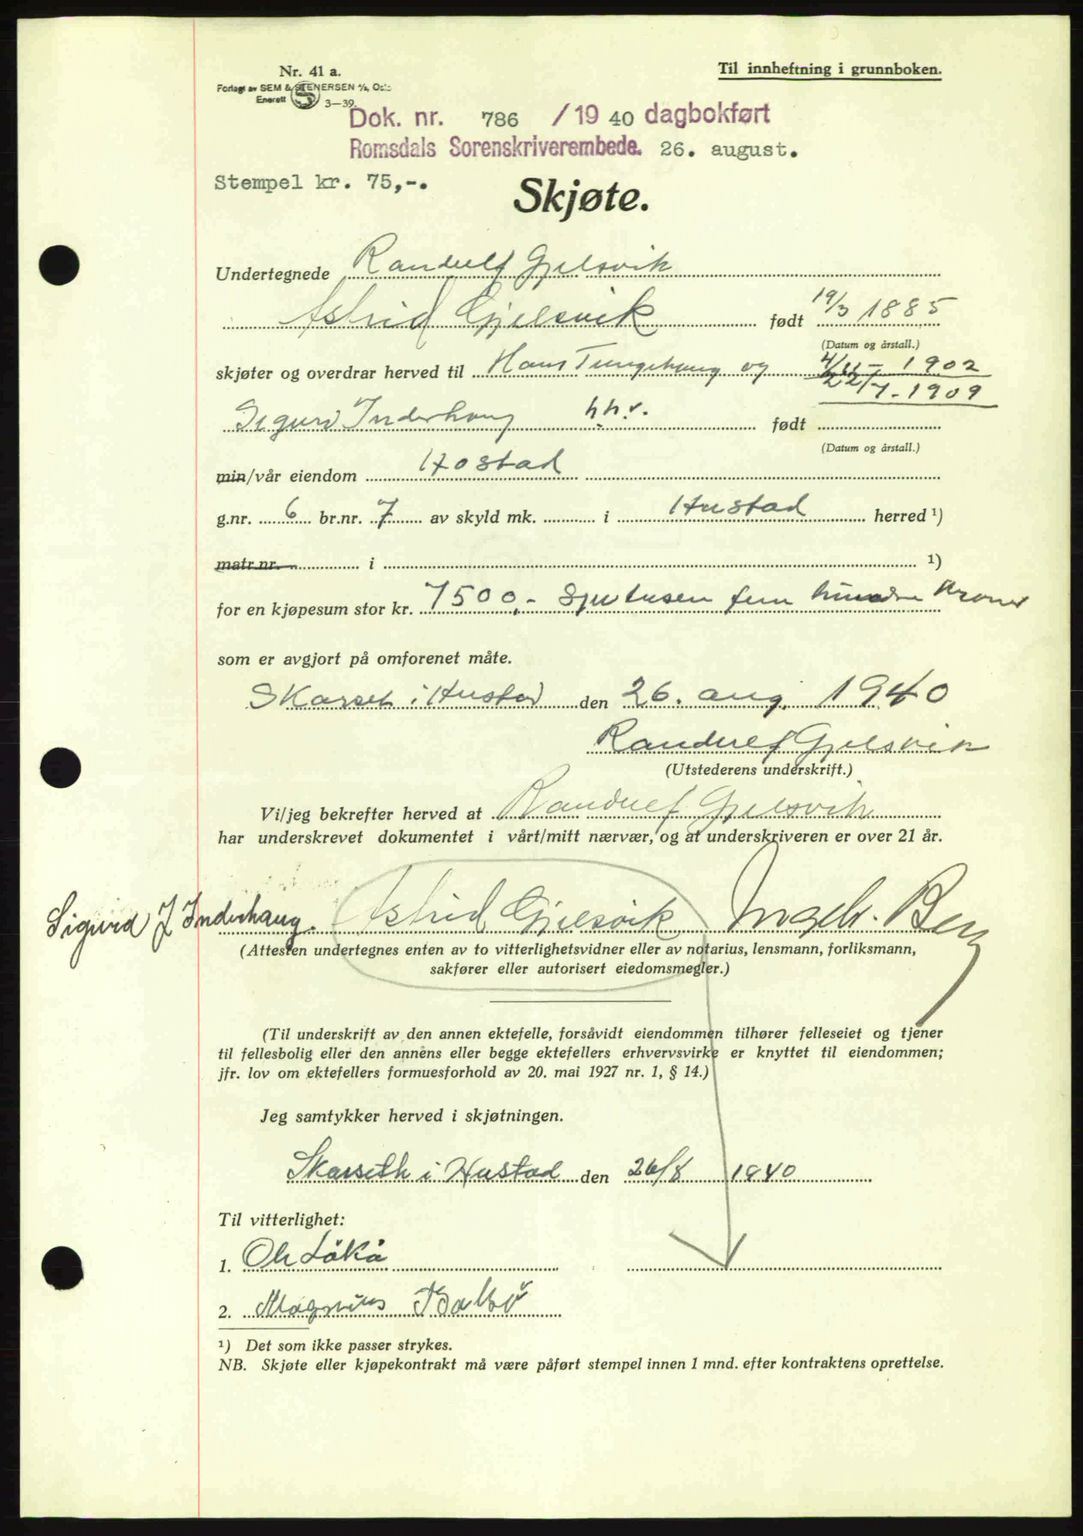 Nr. 41 a.
Til innheftning i grunnboken.
Forlagt av SEM & STENERSEN A/S, Oslo
Enerett S 3—39.
Dok. nr. 786 /19 40 dagbokført
Romsdals Sorenskriverembede. 26. august.
Stempel kr. 75,-.
Skjøte.
Undertegnede Randulf Gjelsvik
Astrid Gjelsvik født 19/3 1885
(Datum og årstall.)
skjøter og overdrar herved til Hans Tungehaug og 4/11 - 1902
22/7 - 1909
Sigurd Inderhaug h.h.v. født
(Datum og årstall.)
min/vår eiendom Hostad
g.nr. 6 br.nr. 7 av skyld mk. i Hustad herred ¹)
matr.nr. i ¹)
for en kjøpesum stor kr. 7500,- Sjutusen fem hundre kroner
som er avgjort på omforenet måte.
Skarset i Hustad den 26. aug. 1940
Randulf Gjelsvik
(Utstederens underskrift.)
Vi/jeg bekrefter herved at Randulf Gjelsvik
har underskrevet dokumentet i vårt/mitt nærvær, og at underskriveren er over 21 år.
Sigurd J Inderhaug. Astrid Gjelsvik Ingebr. Berg
(Attesten undertegnes enten av to vitterlighetsvidner eller av notarius, lensmann, forliksmann,
sakfører eller autorisert eiedomsmegler.)
(Til underskrift av den annen ektefelle, forsåvidt eiendommen tilhører felleseiet og tjener
til fellesbolig eller den annens eller begge ektefellers erhvervsvirke er knyttet til eiendommen;
jfr. lov om ektefellers formuesforhold av 20. mai 1927 nr. 1, § 14.)
Jeg samtykker herved i skjøtningen.
Skarseth i Hustad den 26/8 1940
Til vitterlighet:
1. Ole Låkå
2. Magnus
¹) Det som ikke passer strykes.
NB. Skjøte eller kjøpekontrakt må være påført stempel innen 1 mnd. efter kontraktens oprettelse.